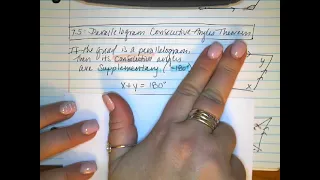 7.5: Parallelogram Consecutive Angles Theorem
If the quad is a parallelogram,
then its Consecutive angles
are Supplementary (=180°)
x+y=180°
y
x